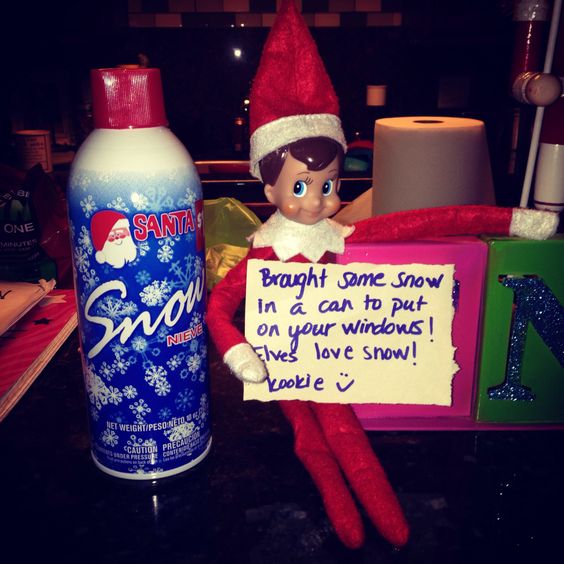 SANTA
Snow
NIEVE
NET WEIGHT/PESO NETO
CAUTION
UNDER PRESSURE
Brought some snow
in a can to put
on your windows!
Elves love snow!
Kookie
N
ONE
MINUTES